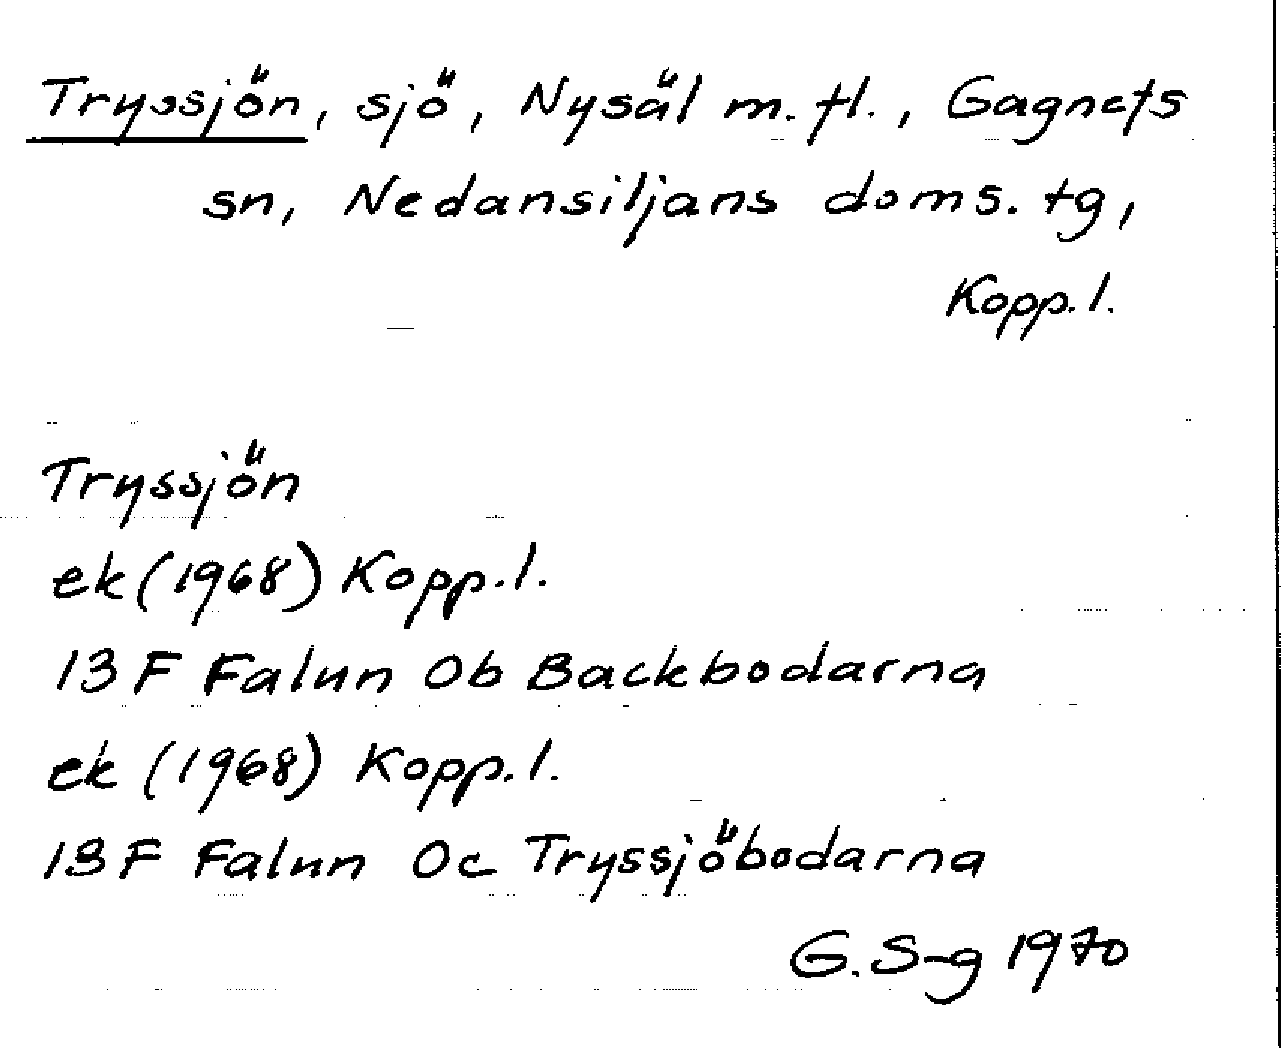 Tryssjön, sjö, Nysäl m.fl., Gagnefs
sn, Nedansiljans doms. tg,
Kopp.l.
Tryssjön
ek (1968) Kopp.l.
13 F Falun 0b Backbodarna
ek (1968) Kopp.l.
13 F Falun 0c Tryssjöbodarna
G. S-g 1970